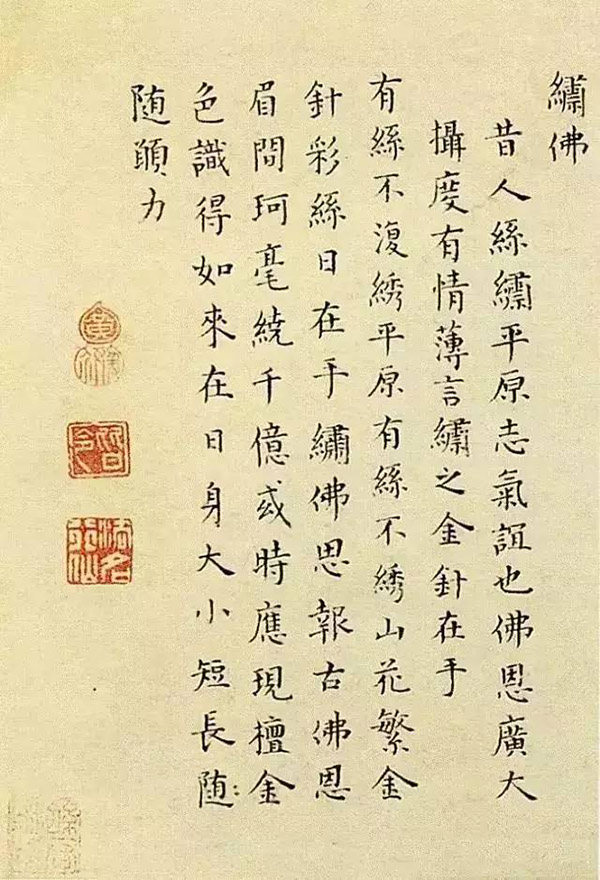 繡佛
昔人絲繡平原志氣誼也佛恩廣大
攝度有情薄言繡之金針在手
有絲不復綉平原有絲不綉山花繁金
針彩絲日在手繡佛恩報古佛恩
眉間珂毫繞千億或時應現檀金
色識得如來在日身大小短長随:
随願力